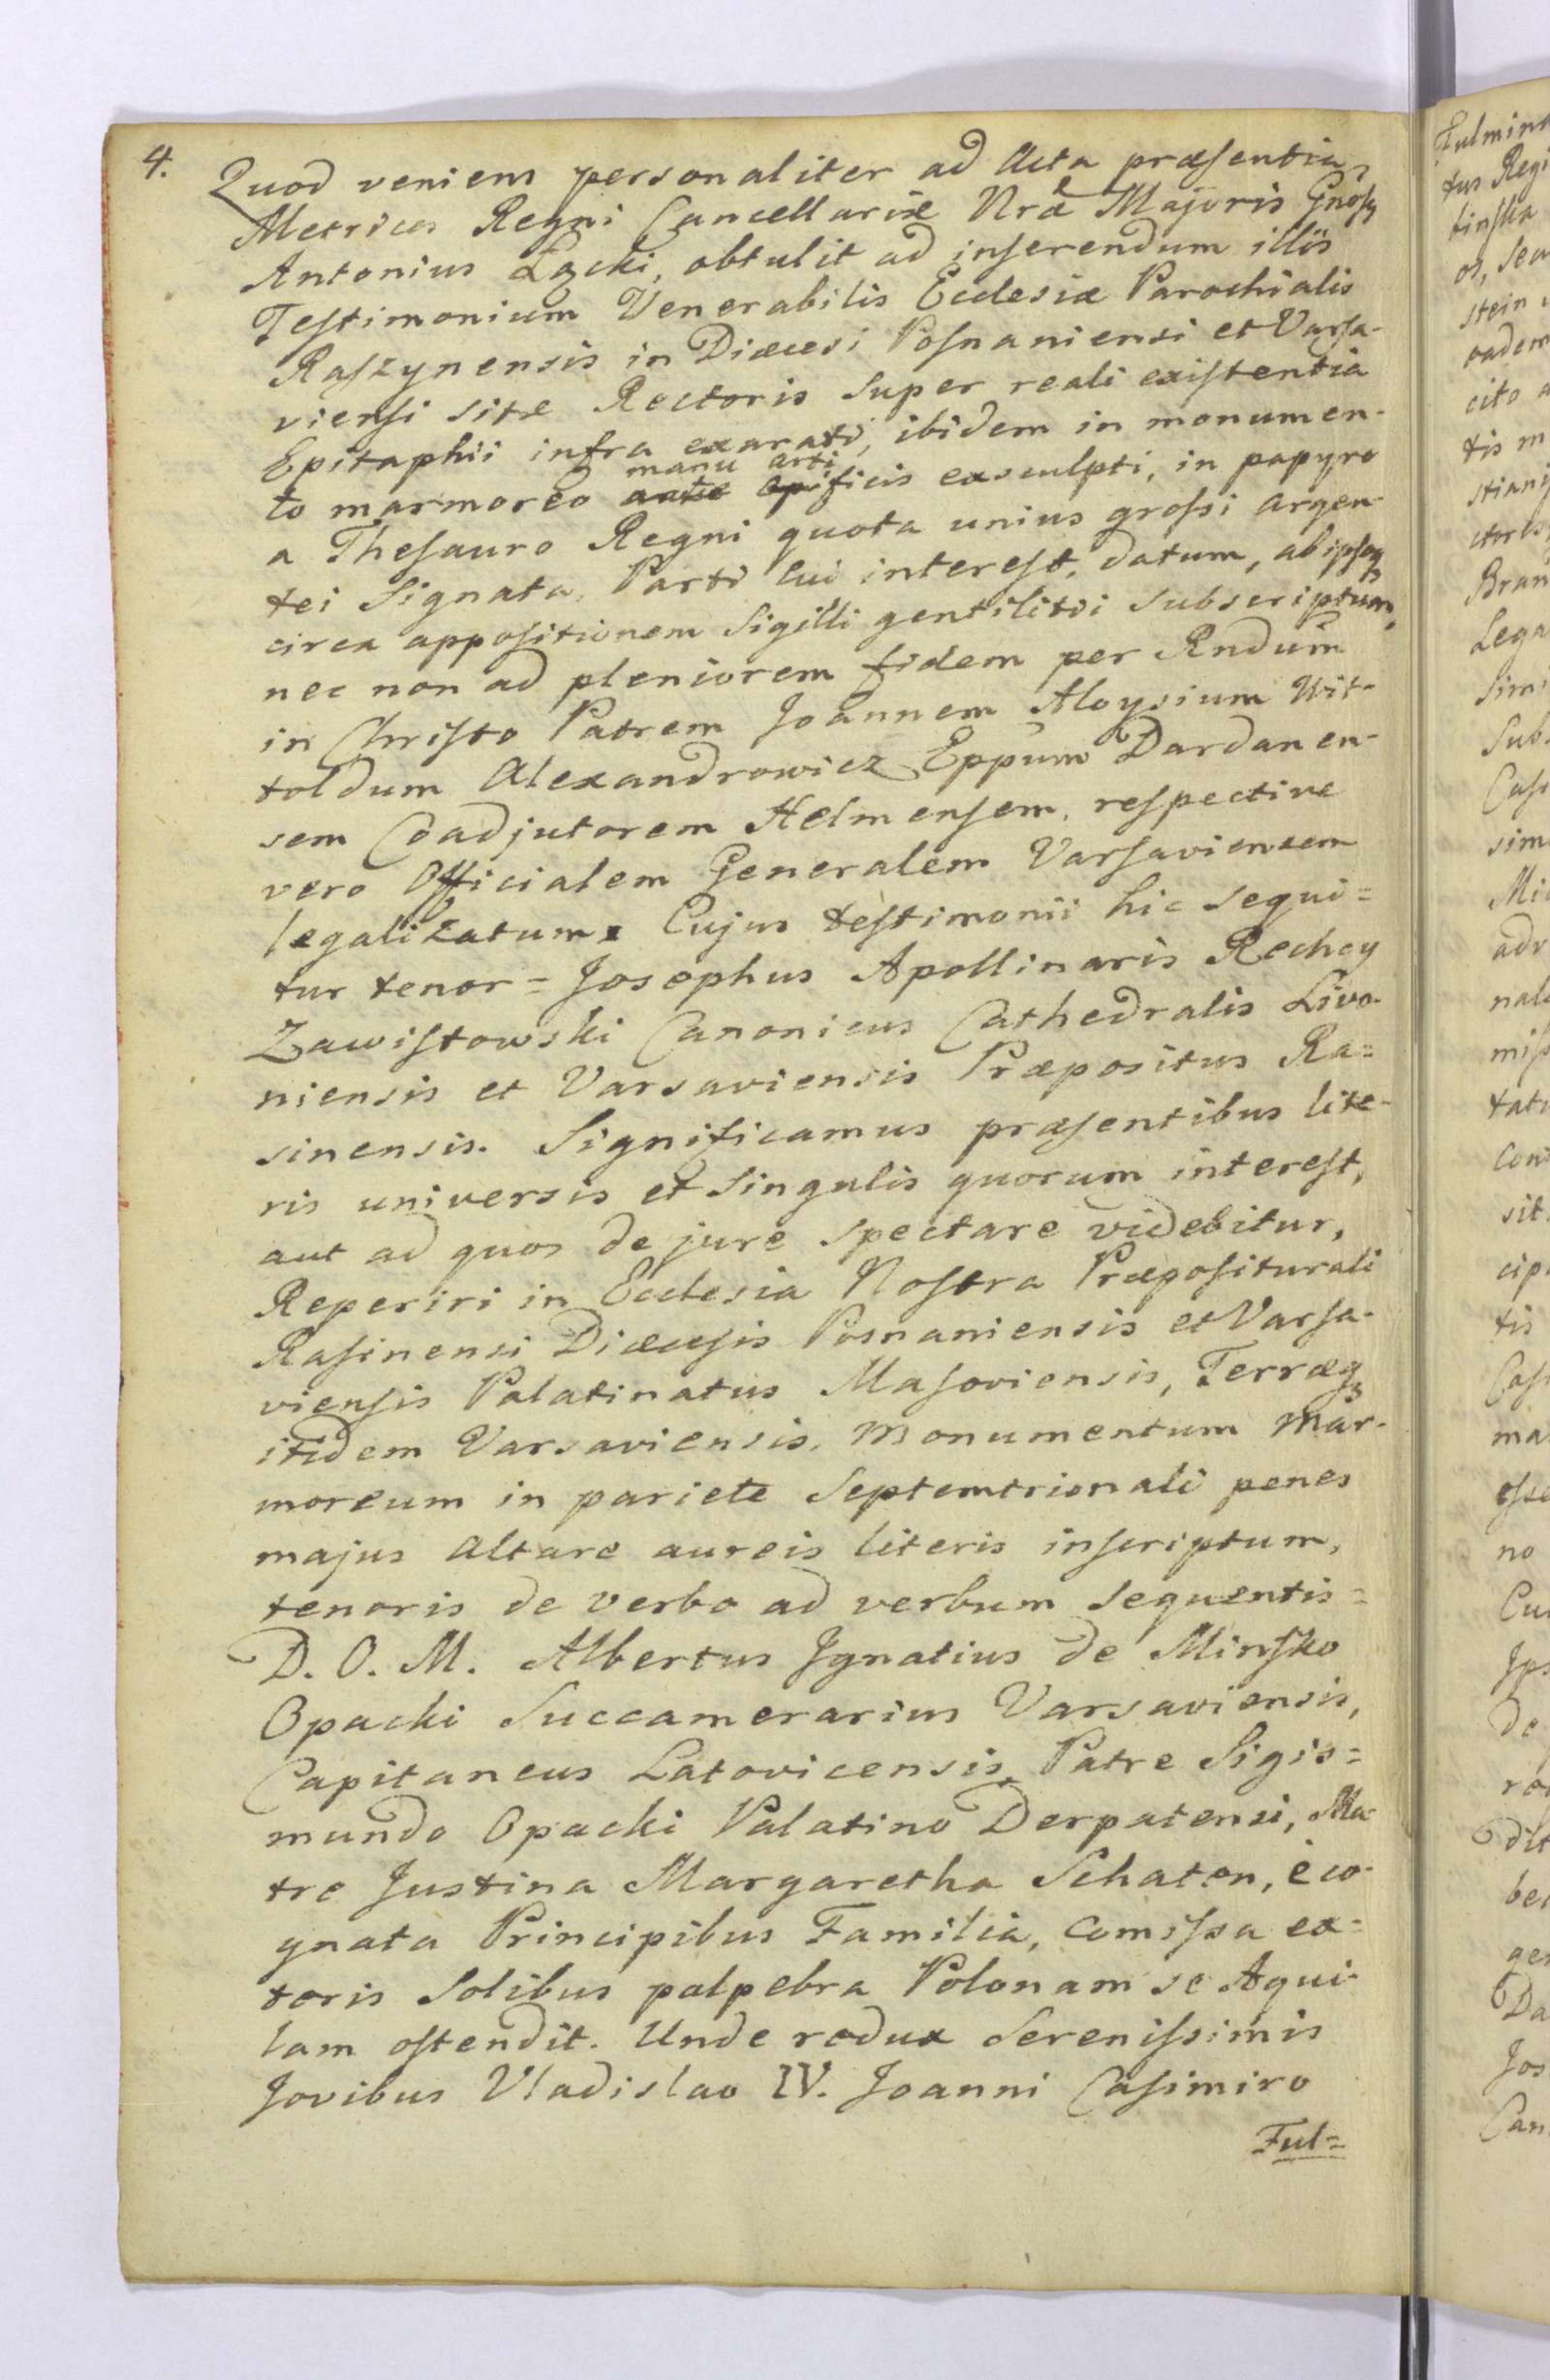 4.
Quod veniens personaliter ad Acta præsentia,
Metrices Regni Cancellariæ Nræ Majoris Gnosus
Antonius Łącki, obtulit ad inserendum illis
Testimonium Venerabilis Ecclesiæ Parochialis
Raszynensis in Diæcesi Posnaniensi et Varsa-
viensi sitæ Rectoris Super reali existentia
Epitaphii infra exarati, ibidem in monumen-
manu arti
to marmoreo opificis exsculpti, in papyro
a Thesauro Regni quota unius grossi argen-
tei Signata, Parti cui interest, datum, ab ipsoq3
circa appositionem Sigilli gentilitii Subscriptum,
nec non ad pleniorem fidem per Rndum
in Christo Patrem Joannem Aloysium Wit-
toldum Alexandrowicz Eppum Dardanen-
sem Coadjutorem Helmensem, respective
vero Officialem Generalem Varsaviensem
legalizatum. Cujus testimonii hic sequi=
tur tenor = Josephus Apollinaris Rechcy
Zawistowski Canonicus Cathedralis Livo-
niensis et Varsaviensis Præpositus Ra=
sinensis. Significamus præsentibus lite-
ris universis et Singulis quorum interest,
aut ad quos de jure Spectare videbitur,
Reperiri in Ecclesia Nostra Præpositurali
Rasinensi Diæcesis Posnaniensis et Varsa-
viensis Palatinatus Masoviensis, Terræq3
itidem Varsaviensis, Monumentum mar-
moreum in pariete Septemtrionali penes
majus Altare aureis literis inscriptum,
tenoris de verbo ad verbum Sequentis=
D. O. M. Albertus Ignatius de Minsko
Opacki Succamerarius Varsaviensis,
Capitaneus Latovicensis, Patre Sigis=
mundo Opacki Palatino Derpatensi, Ma-
tre Justina Margaretha Schaten, è co-
gnata Principibus Familia, comissa ex=
teris Solibus palpebra Polonam se Aqui-
lam ostendit. Unde redux Serenissimis
Jovibus Vladislao IV. Joanni Casimiro
Ful=